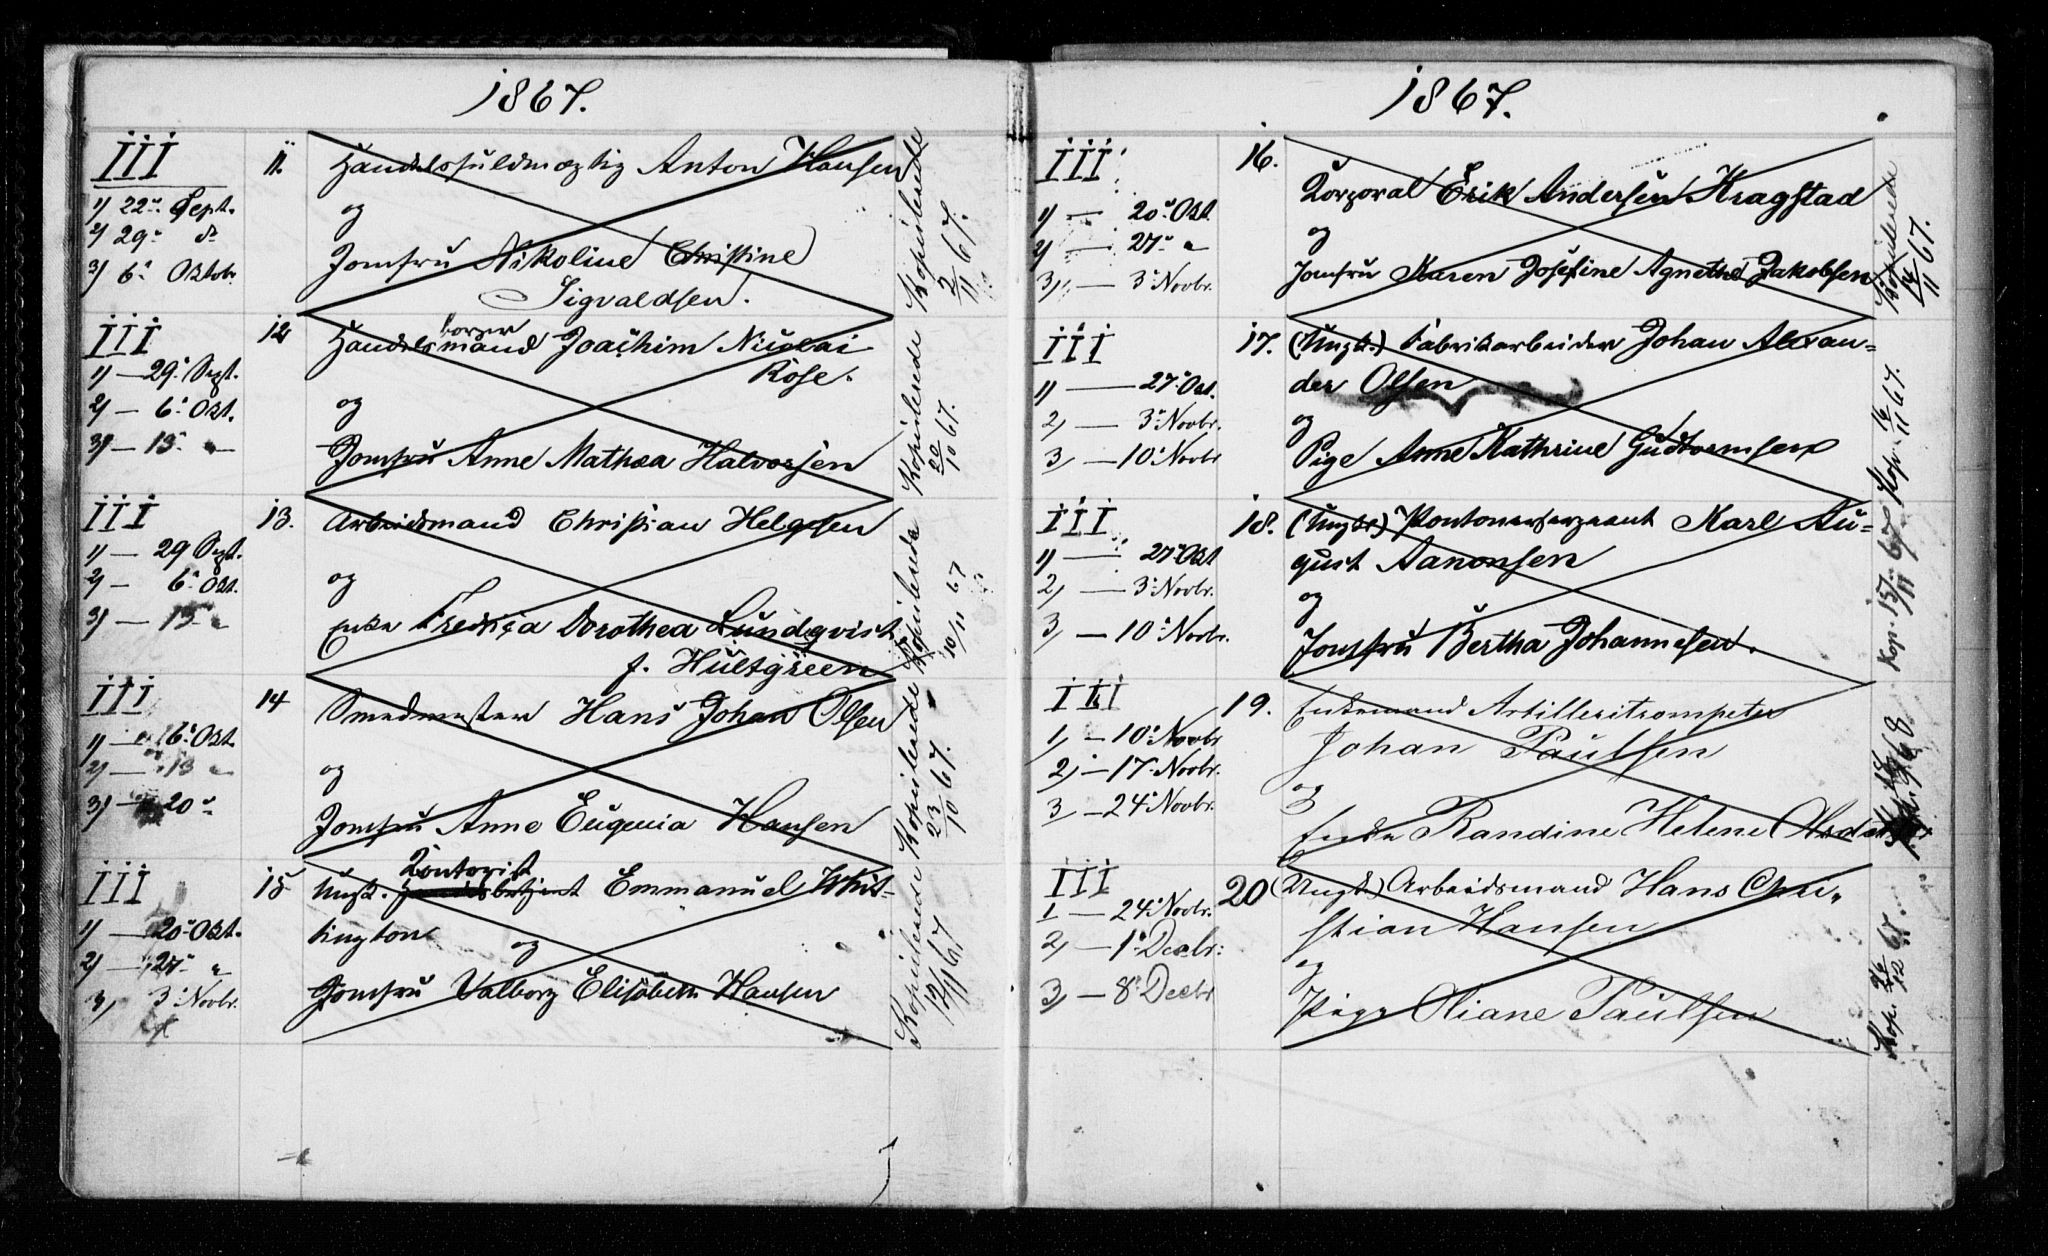 1867.
III
1) 22: Sept.
2) 29: do
3) 6: Oktobr.
11.
Handelsfuldmægtig Anton Hansen
og
Jomfru Nikoline Christine
Sigvaldsen.
Kopulerede 2/11 67.
III
1) — 29: Sept.
2) — 6: Okt.
3) — 13: "
12
borger
Handelsmand Joachim Nicolai
Rose.
og
Jomfru Anne Mathea Halvorsen
Kopulerede 22/10 67.
III
1) — 29 Sept.
2) — 6: Okt.
3) — 13 "
13.
Arbeidsmand Christian Helgesen
og
Enke Fredrica Dorothea Lundqvist
f. Hultgreen
Kopulerede 10/11 67
III
1) — 6: Okt
2) — 13 "
3) — 20 "
14
Smedmester Hans Johan Olsen
og
Jomfru Anne Eugenia Hansen
Kopulerede 23/10 67.
III
1) — 20: Okt.
2) — 27: "
3) 3: Novbr.
15
Kontorist
Ungk. betjent Emmanuel Whit-
tington
og
Jomfru Valborg Elisabeth Hansen
Kopulerede 12/11 67.
1867.
III
1) — 20: Okt
2) — 27: "
3) — 3: Novbr.
16.
Korporal Erik Andersen Kragstad
og
Jomfru Karen Josefine Agnethe Jakobsen
Kopulerede 14/11 67.
III
1) — 27: Okt.
2) — 3: Novbr.
3) — 10: Novbr
17.
(Ungk.) Fabrikarbeider Johan Alexan=
der Olsen
og
Pige Anne Kathrine Gudtormsen
Kop. 16/11 67.
III
1) — 27: Okt
2) — 3: Novbr.
3) — 10: Novbr.
18.
(Ungkr) Pontonersergeant Karl Au=
gust Aanonsen
og
Jomfru Bertha Johannesen.
Kop. 15/11 67
III
1) — 10: Novbr
2) — 17: Novbr.
3 — 24: Novbr.
19.
Enkemand Artilleritrompeter
Johan Paulsen
og
Enke Randine Helene
68
III
1 — 24: Novbr.
2) — 1: Decbr:
3) — 8: Decbr
20
(Ungk) Arbeidsmand Hans Chri-
stian Hansen
og
Pige Oliane Paulsen
Kop. 26/12 67.